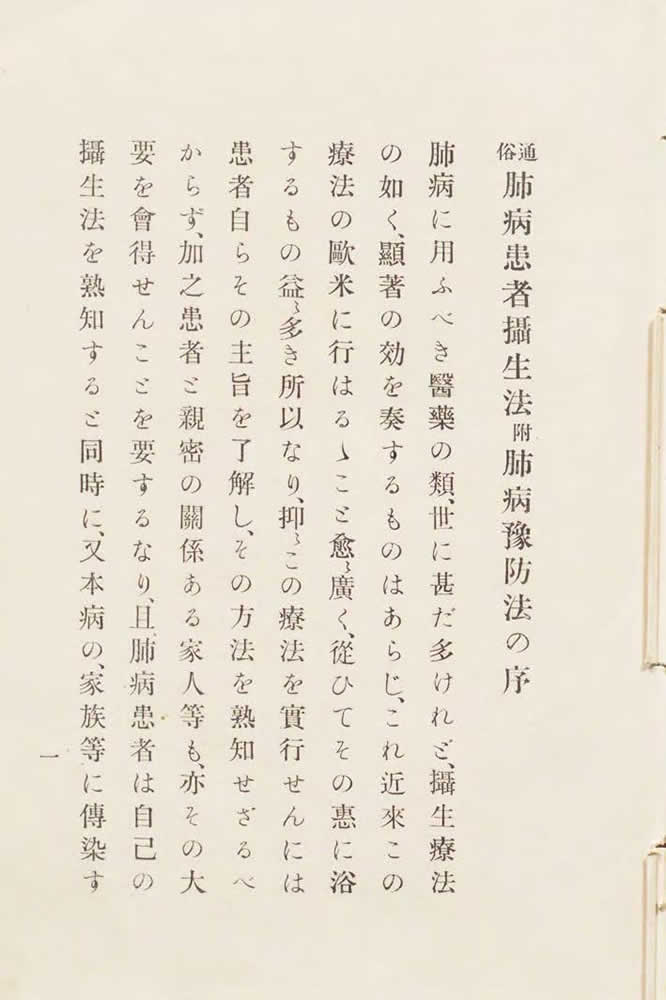 通俗肺病患者攝生法附肺病豫防法の序
肺病に用ふべき醫藥の類、世に甚だ多けれど、攝生療法
の如く、顯著の効を奏するものはあらじ、これ近來この
療法の歐米に行はるゝこと愈〻廣く、從ひてその惠に浴
するもの益〻多き所以なり、抑〻この療法を實行せんには
患者自らその主旨を了解し、その方法を熟知せざるべ
からず、加之患者と親密の關係ある家人等も、亦その大
要を會得せんことを要するなり、且肺病患者は自己の
攝生法を熟知すると同時に、又本病の、家族等に傳染す
一